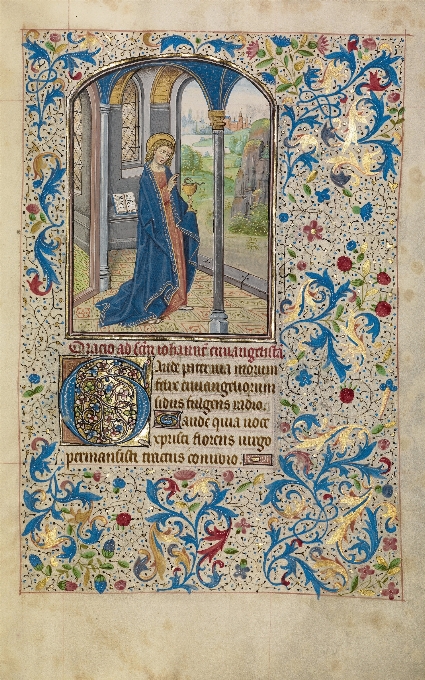 Oracio ad scm iohanne euuangelista
Gaude pater via morum
euuangeliorum
sidus fulgens radio.
Gaude quia voce
xpisti florens virgo
permansisti tractus connubio.